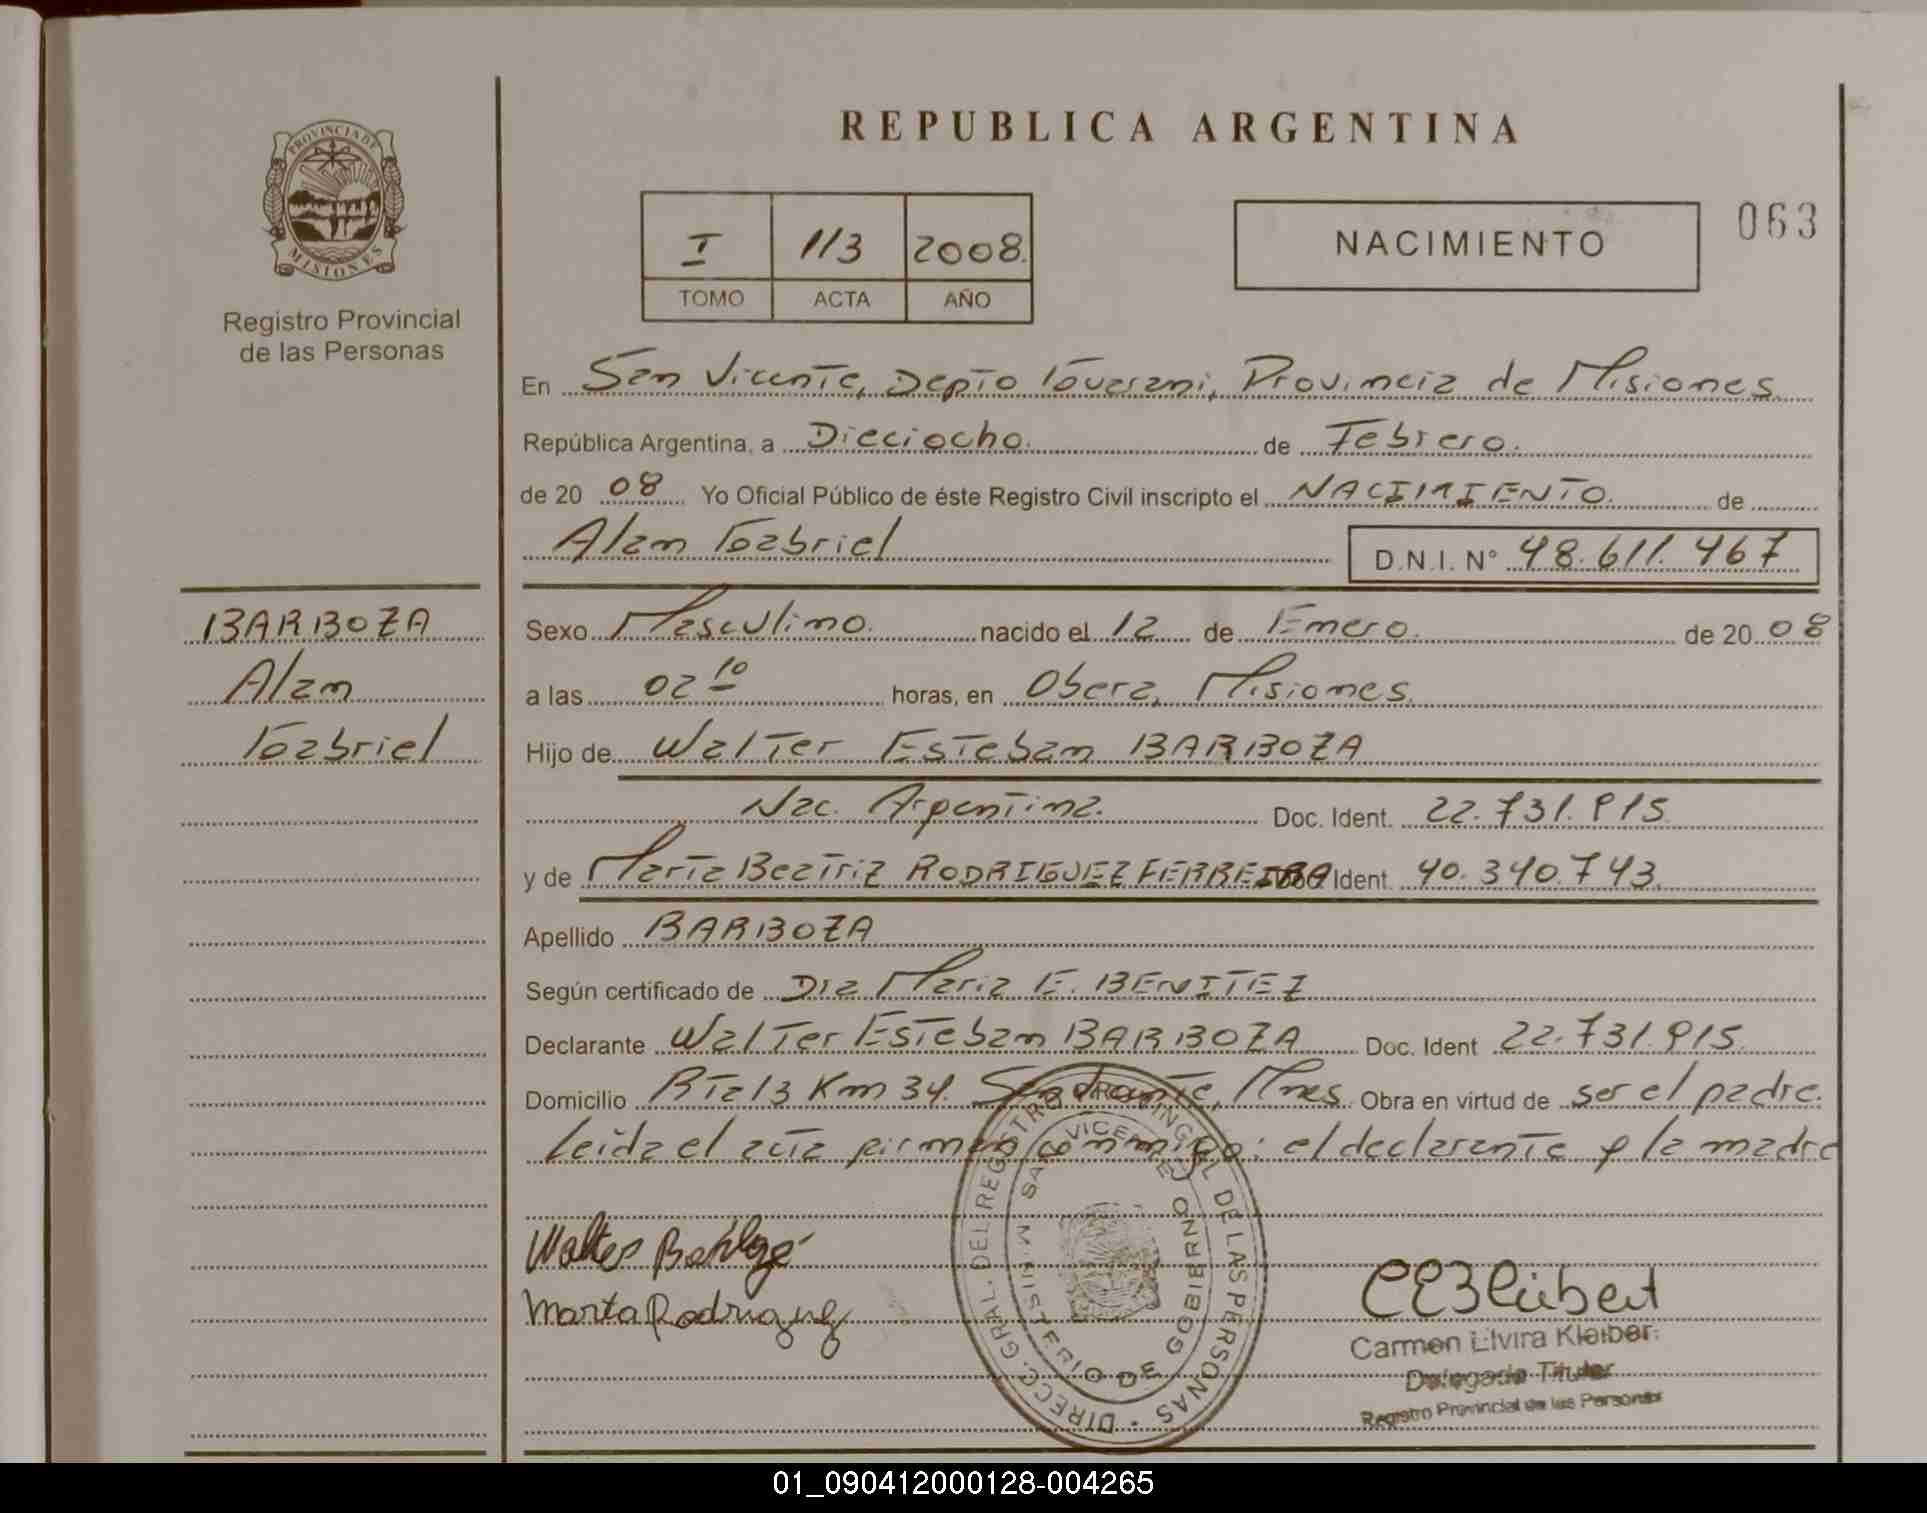 REPUBLICA ARGENTINA
PROVINCIA DE MISIONES
Registro Provincial
de las Personas
I 113 2008.
TOMO ACTA AÑO
NACIMIENTO
063
En San Vicente, Depto Guarani, Provincia de Misiones
República Argentina, a Dieciocho. de Febrero.
de 20 08 Yo Oficial Público de éste Registro Civil inscripto el NACIMIENTO. de
Alan Gabriel D.N.I. N° 48.611.467
BARBOZA
Alan
Gabriel
Sexo Masculino. nacido el 12 de Enero. de 20 08
a las 02 10 horas, en Obera, Misiones.
Hijo de Walter Esteban BARBOZA
Nac. Argentina. Doc. Ident. 22.731.915
y de Marta Beatriz RODRIGUEZ FERREIRA Doc. Ident. 40.340.743.
Apellido BARBOZA
Según certificado de Dra Maria E. BENITEZ
Declarante Walter Esteban BARBOZA Doc. Ident 22.731.915.
Domicilio Rta 13 Km 34. San Vicente, Mnes. Obra en virtud de ser el padre.
Leida el acta firman conmigo: el declarante y la madre
Walter
Marta Rodriguez
DIRECC. GRAL. DEL REGISTRO PROVINCIAL DE LAS PERSONAS
SAN VICENTE
MINISTERIO DE GOBIERNO
Carmen Elvira Kleiber
Delegada Titular
Registro Provincial de las Personas
01_090412000128-004265